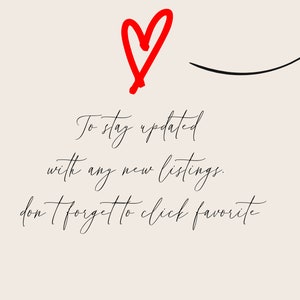 To stay updated
with any new listings.
don't forget to click favorite